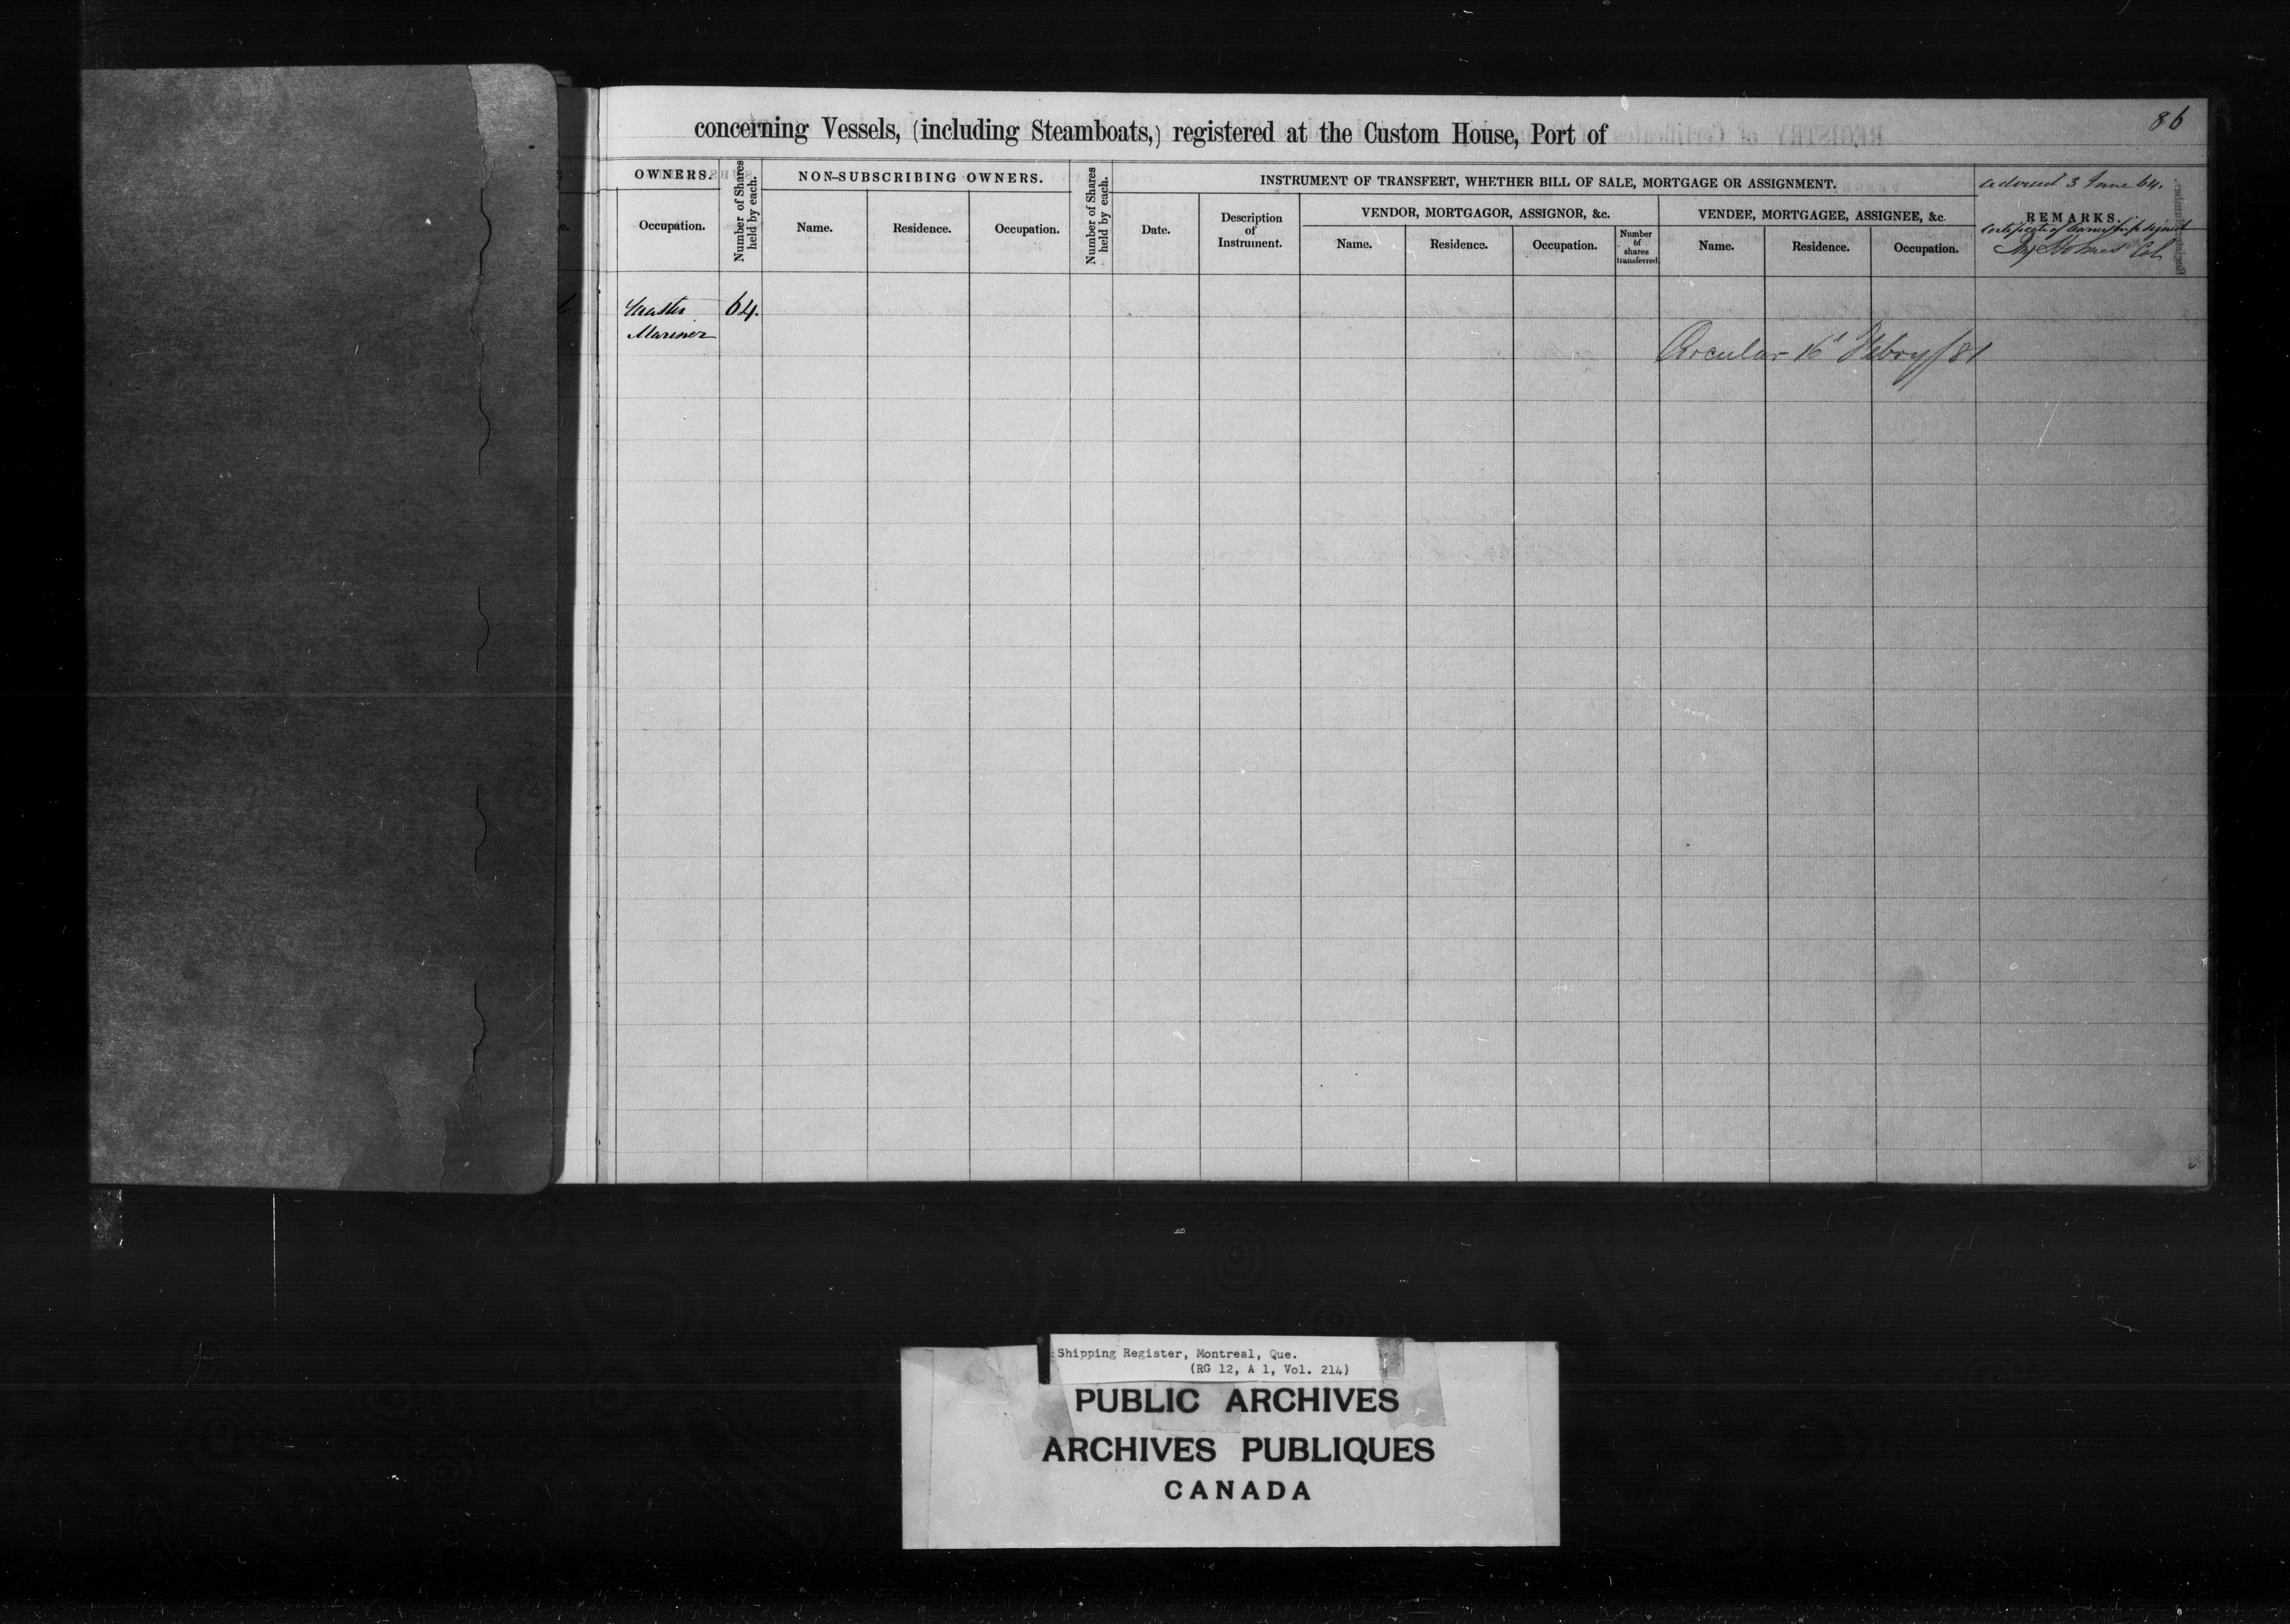 86
concerning Vessels, (including Steamboats,) registered at the Custom House, Port of
OWNERS.
Number of Shares held by each.
NON-SUBSCRIBING OWNERS.
Number of Shares held by each.
INSTRUMENT OF TRANSFERT, WHETHER BILL OF SALE, MORTGAGE OR ASSIGNMENT.
3 June 64.
REMARKS.
Certificate of Ownership signed
Occupation.
Name.
Residence.
Occupation.
Date.
Description
of
Instrument.
VENDOR, MORTGAGOR, ASSIGNOR, &c.
Name.
Residence.
Occupation.
Number
of
shares
transferred
VENDEE, MORTGAGEE, ASSIGNEE, &c.
Name.
Residence.
Occupation.
Holmes Col
Master 64.
Mariner
Circular 16th Febry/81
Shipping Register, Montreal, Que.
(RG 12, A 1, Vol. 214)
PUBLIC ARCHIVES
ARCHIVES PUBLIQUES
CANADA